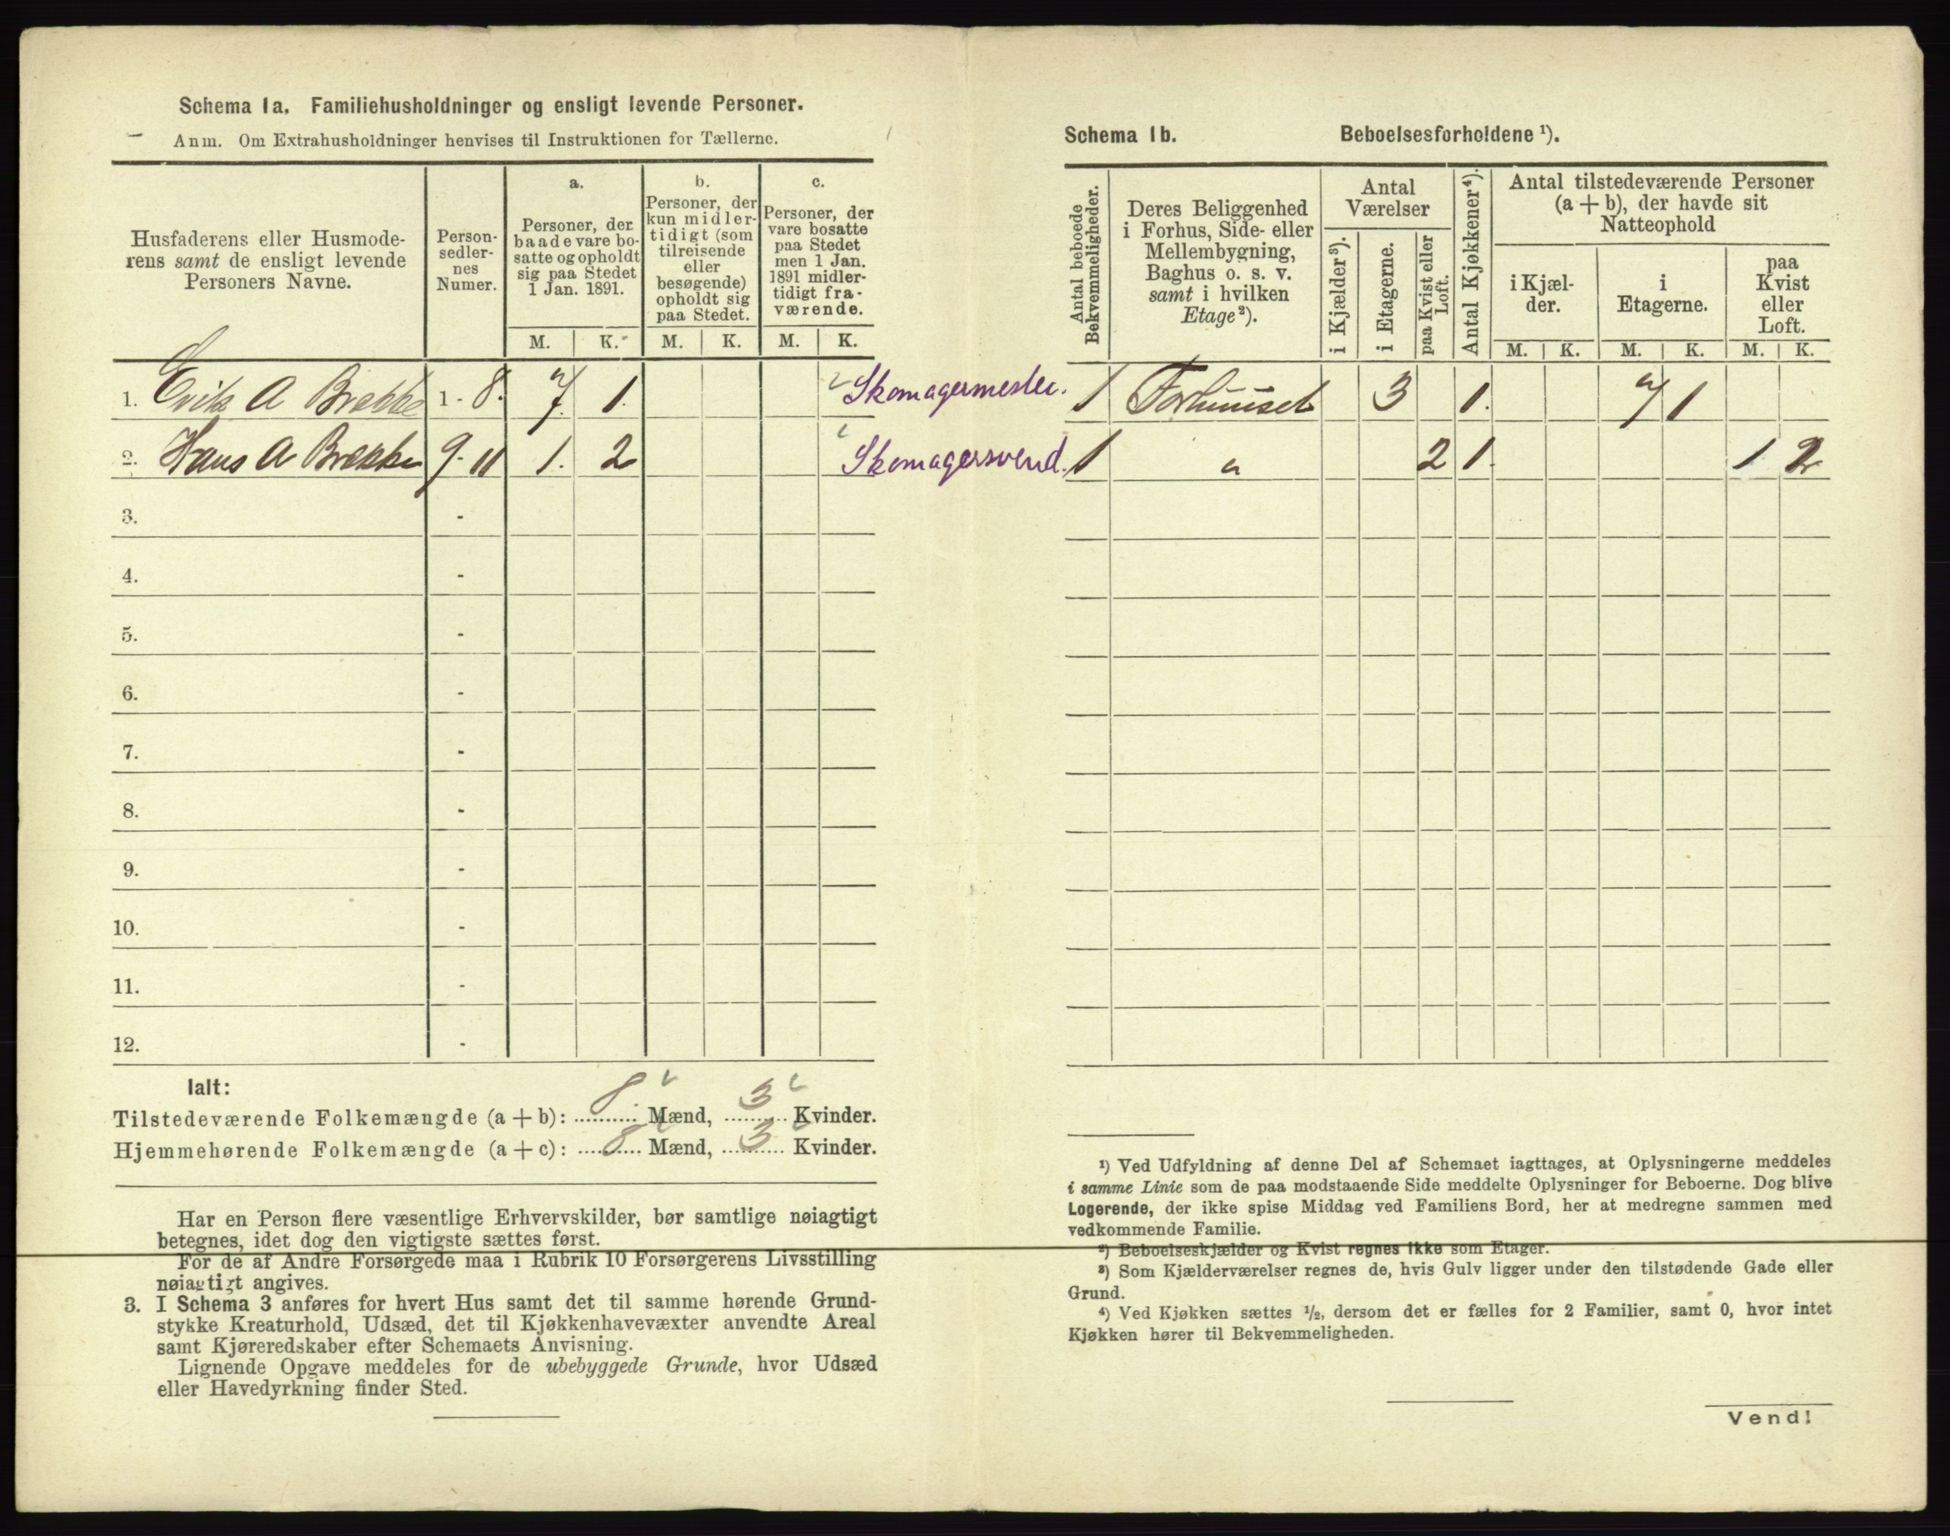 Schema 1a. Familiehusholdninger og ensligt levende Personer.
Anm. Om Extrahusholdninger henvises til Instruktionen for Tællerne.
Husfaderens eller Husmode-
rens samt de ensligt levende
Personers Navne.
Person-
sedler-
nes
Numer.
a.
Personer, der
baade vare bo-
satte og opholdt
sig paa Stedet
1 Jan. 1891.
b.
Personer, der
kun midler-
tidigt (som
tilreisende
eller
besøgende)
opholdt sig
paa Stedet.
c.
Personer, der
vare bosatte
paa Stedet
men 1 Jan.
1891 midler-
tidigt fra-
værende.
M. K. M. K. M. K.
1. Erik A Brække 1-8. 7. 1. Skomagermester.
2. Hans A Brække 9-11 1. 2 Skomagersvend.
3. -
4. -
5. -
6. -
7. -
8. -
9. -
10. -
11. -
12. -
Ialt:
Tilstedeværende Folkemængde (a + b): 8 Mænd, 3 Kvinder.
Hjemmehørende Folkemængde (a + c): 8 Mænd, 3 Kvinder.
Har en Person flere væsentlige Erhvervskilder, bør samtlige nøiagtigt
betegnes, idet dog den vigtigste sættes først.
For de af Andre Forsørgede maa i Rubrik 10 Forsørgerens Livsstilling
nøiagtigt angives.
3. I Schema 3 anføres for hvert Hus samt det til samme hørende Grund-
stykke Kreaturhold, Udsæd, det til Kjøkkenhavevæxter anvendte Areal
samt Kjøreredskaber efter Schemaets Anvisning.
Lignende Opgave meddeles for de ubebyggede Grunde, hvor Udsæd
eller Havedyrkning finder Sted.
Schema 1b. Beboelsesforholdene ¹).
Antal beboede
Bekvemmeligheder.
Deres Beliggenhed
i Forhus, Side- eller
Mellembygning,
Baghus o. s. v.
samt i hvilken
Etage²).
Antal
Værelser
i Kjælder³).
i Etagerne.
paa Kvist eller
Loft.
Antal Kjøkkener⁴).
Antal tilstedeværende Personer
(a + b), der havde sit
Natteophold
i Kjæl-
der.
i
Etagerne.
paa
Kvist
eller
Loft.
M. K. M. K. M. K.
1 Forhuuset 3 1. 7 1
1 " 2 1. 1 2
¹) Ved Udfyldning af denne Del af Schemaet iagttages, at Oplysningerne meddeles
i samme Linie som de paa modstaaende Side meddelte Oplysninger for Beboerne. Dog blive
Logerende, der ikke spise Middag ved Familiens Bord, her at medregne sammen med
vedkommende Familie.
²) Beboelseskjælder og Kvist regnes ikke som Etager.
³) Som Kjælderværelser regnes de, hvis Gulv ligger under den tilstødende Gade eller
Grund.
⁴) Ved Kjøkken sættes ½, dersom det er fælles for 2 Familier, samt 0, hvor intet
Kjøkken hører til Bekvemmeligheden.
Vend!